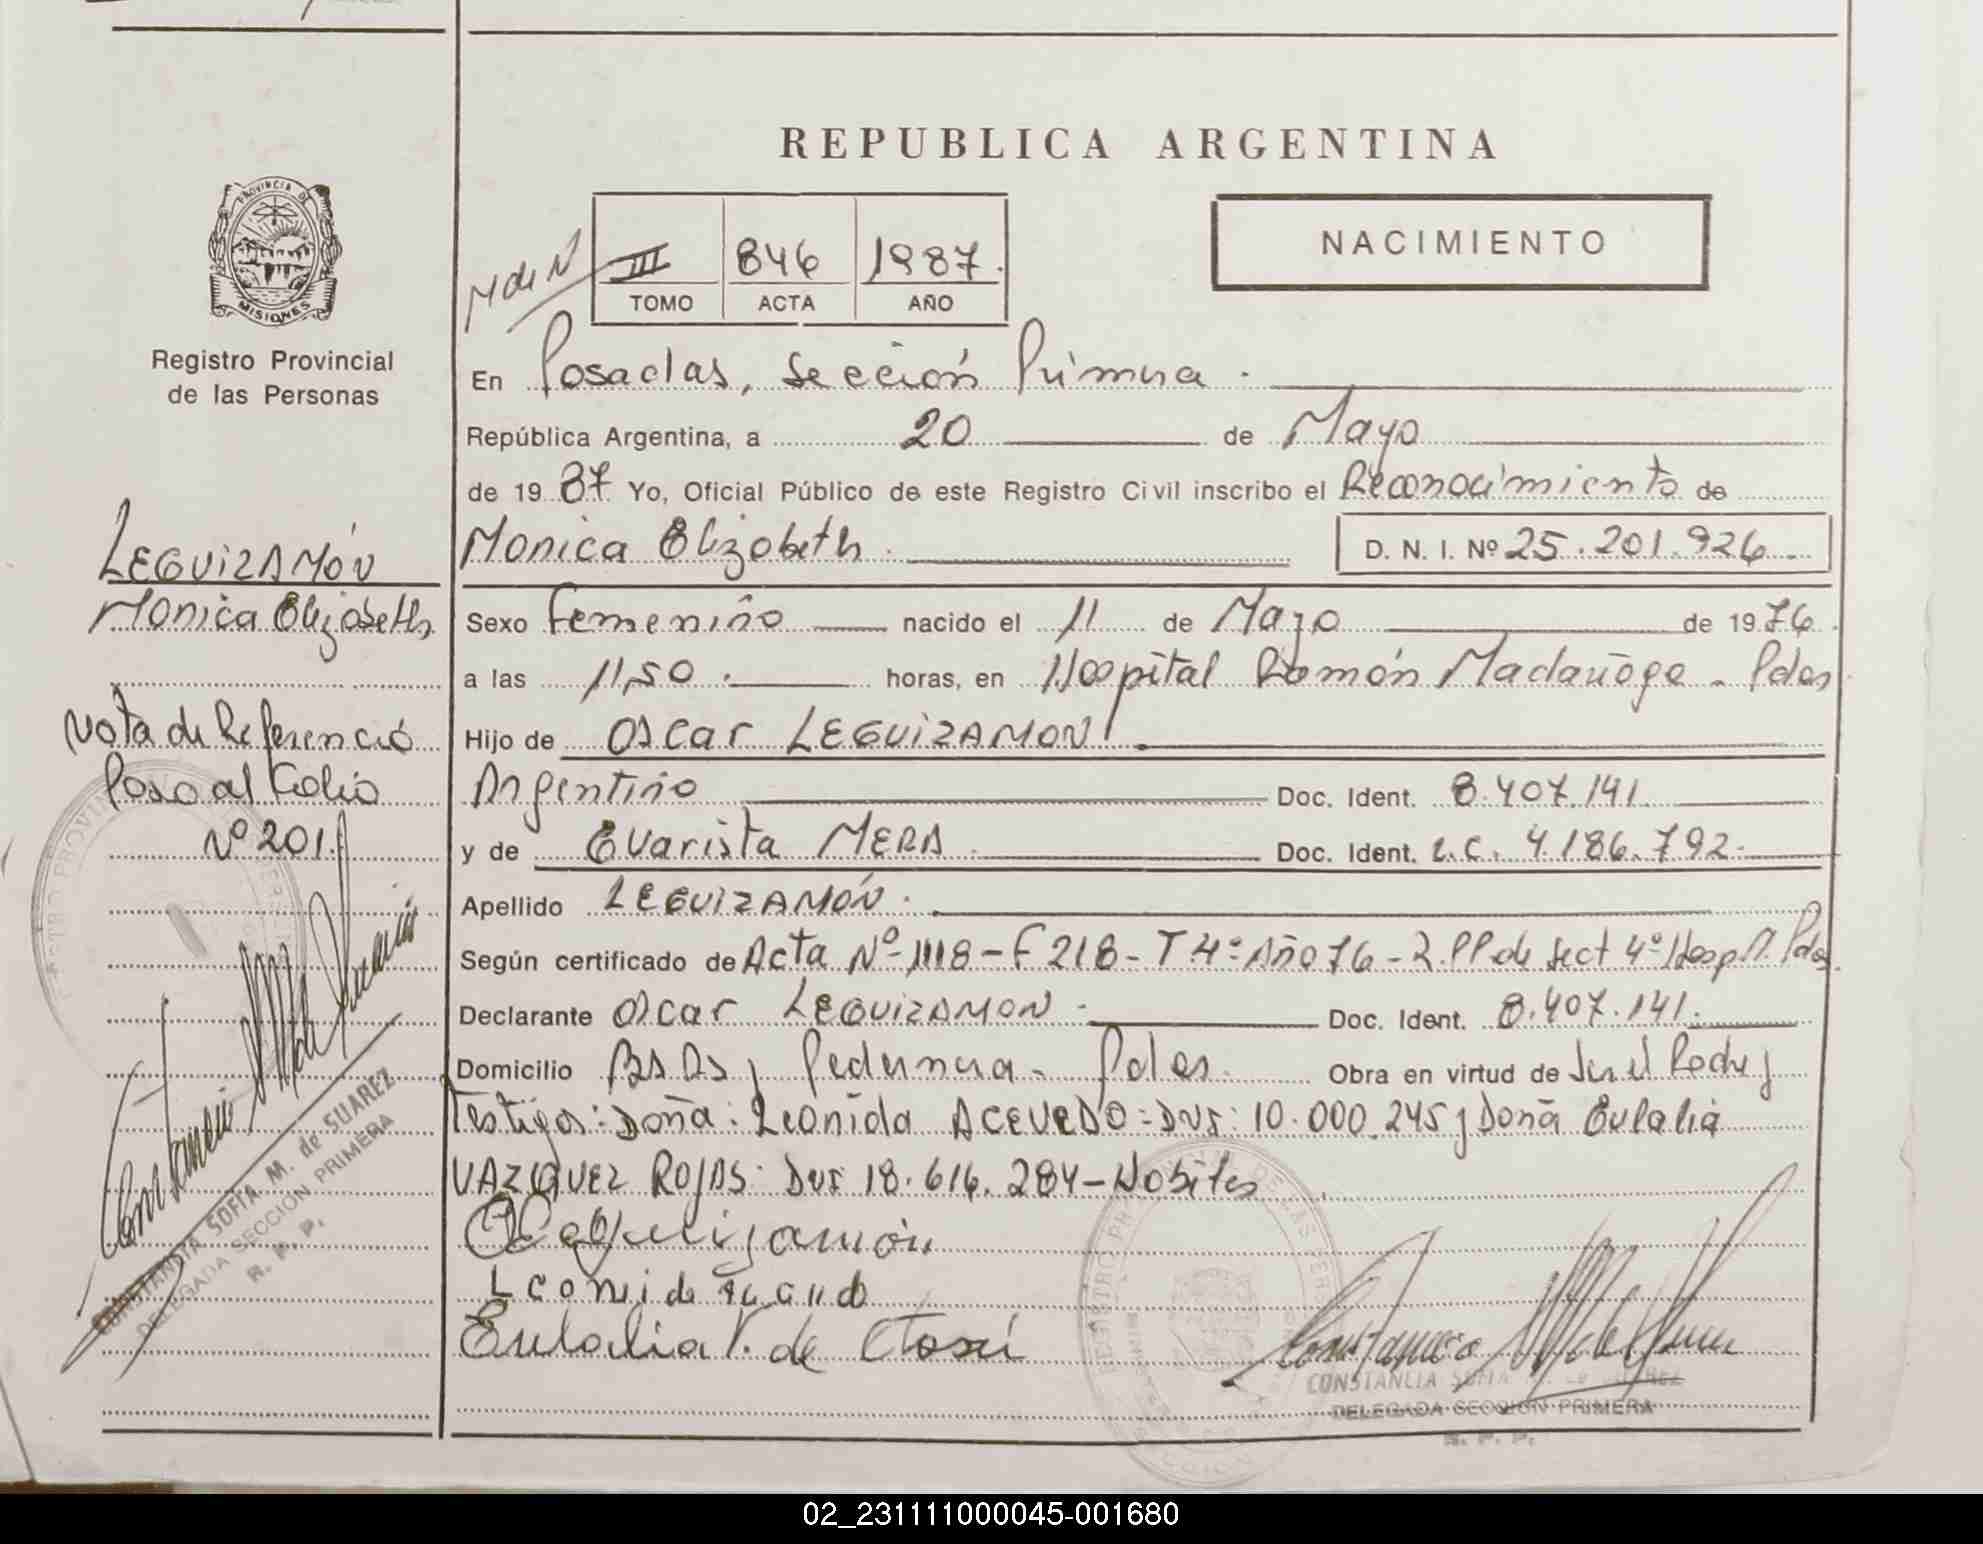 REPUBLICA ARGENTINA
PROVINCIA DE
MISIONES
Registro Provincial
de las Personas
NACIMIENTO
M de N
III 846 1987.
TOMO ACTA AÑO
En Posadas, Sección Primera.
República Argentina, a 20 de Mayo
de 1987 Yo, Oficial Público de este Registro Civil inscribo el Reconocimiento de
Monica Elizabeth D. N. I. Nº 25.201.926
LEGUIZAMÓN
Monica Elizabeth
Sexo Femenino nacido el 11 de Mayo de 1976.
a las 11,50. horas, en Hospital Ramón Madariaga - Pdas
Hijo de Oscar LEGUIZAMON
Argentino Doc. Ident. 8.407.141
y de Evarista MERA Doc. Ident. L.C. 4.186.792.
Apellido LEGUIZAMÓN.
Según certificado de Acta Nº 1118 - F 218 - T 4º Año 76 - R.PP de Sect 4º Hosp. Pdas.
Declarante Oscar LEGUIZAMON - Doc. Ident. 8.407.141.
Domicilio Bs As y Pedernera - Pdas. Obra en virtud de
Testigos: Doña: Leonida ACEVEDO = DNI: 10.000.245 y Doña Eulalia
VAZQUEZ ROJAS: DNI 18.616.284 -
Leguizamón
Eulalia V. de
Nota de Referencia
Paso al Folio
Nº 201.
CONSTANCIA SOFIA M. de SUAREZ
DELEGADA SECCION PRIMERA
R. P. P.
CONSTANCIA SOFIA M. de SUAREZ
DELEGADA SECCION PRIMERA
R. P. P.
02_231111000045-001680